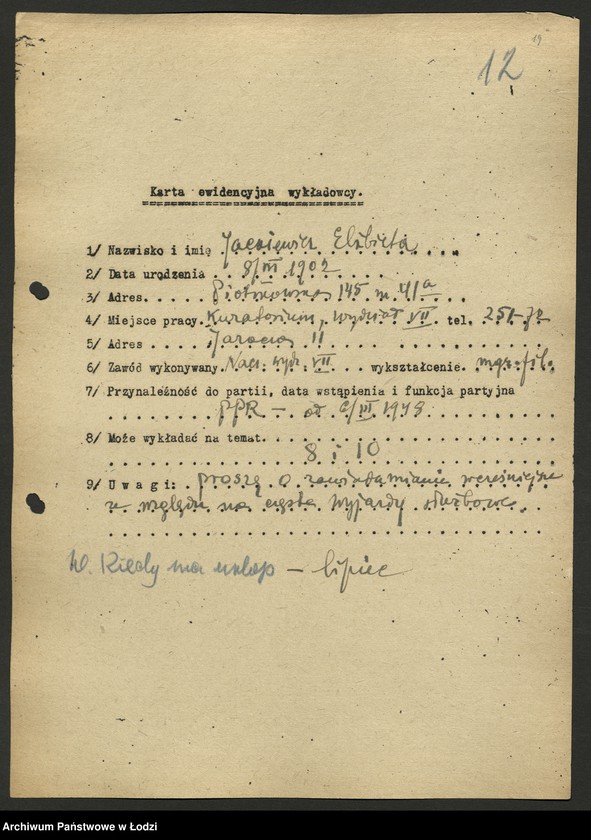 19
12
Karta ewidencyjna wykładowcy.
1/ Nazwisko i imię Jackiewicz Elżbieta
2/ Data urodzenia 8/III 1902
3/ Adres. Piotrkowska 145 m. 41a
4/ Miejsce pracy. Kuratorium, wydział VII tel. 251-72
5/ Adres Jaracza 11
6/ Zawód wykonywany. Nacz. wydz. VII wykształcenie. mgr. fil.
7/ Przynależność do partii, data wstąpienia i funkcja partyjna
PPR — od III 1948
8/ Może wykładać na temat.
8 i 10
9/ U w a g i: proszę o zawiadamianie wcześniejsze
z względu na częste wyjazdy służbowe.
10. Kiedy ma urlop — lipiec
Archiwum Państwowe w Łodzi